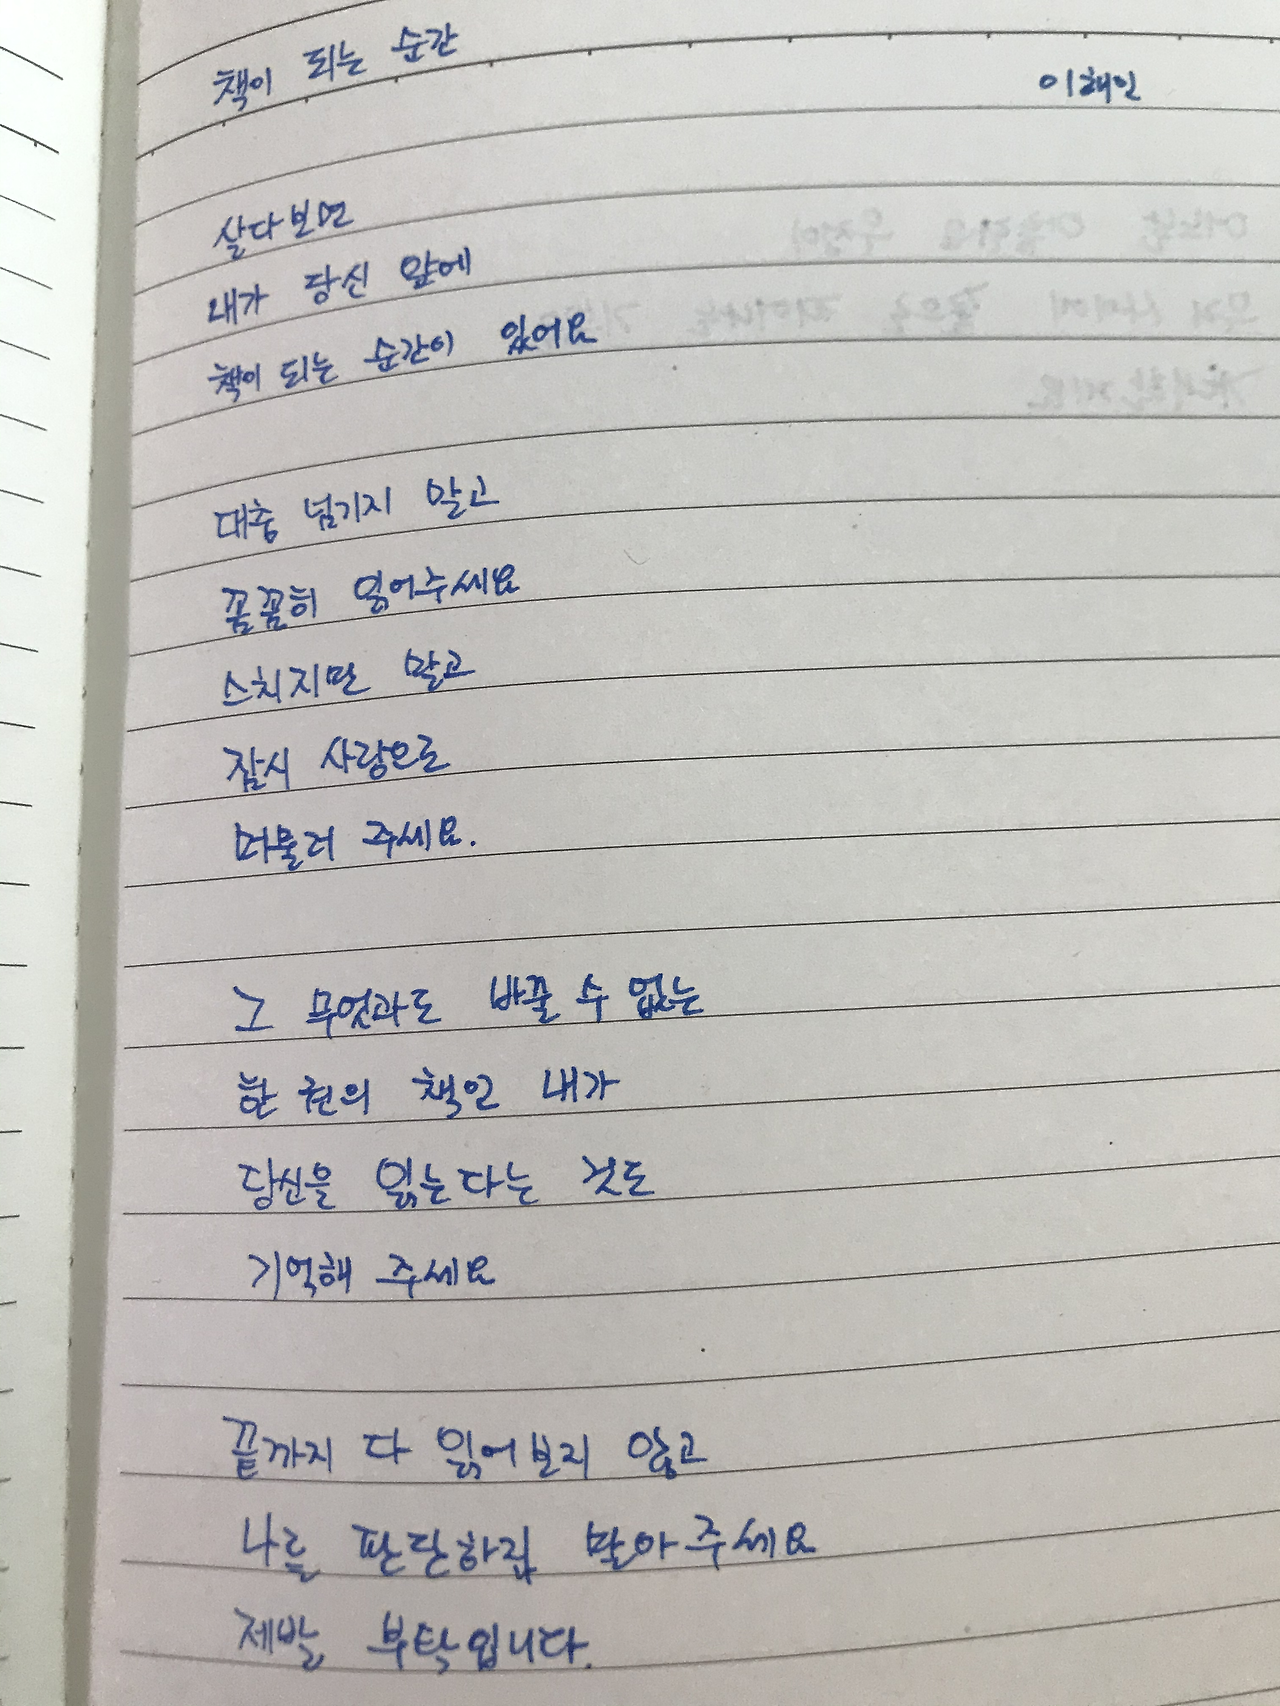 책이 되는 순간
이해인
살다보면
내가 당신 앞에
책이 되는 순간이 있어요
대충 넘기지 말고
꼼꼼히 읽어주세요
스치지만 말고
잠시 사랑으로
머물러 주세요.
그 무엇과도 바꿀 수 없는
한 권의 책인 내가
당신을 읽는다는 것도
기억해 주세요
끝까지 다 읽어보지 않고
나를 판단하진 말아주세요
제발 부탁입니다.